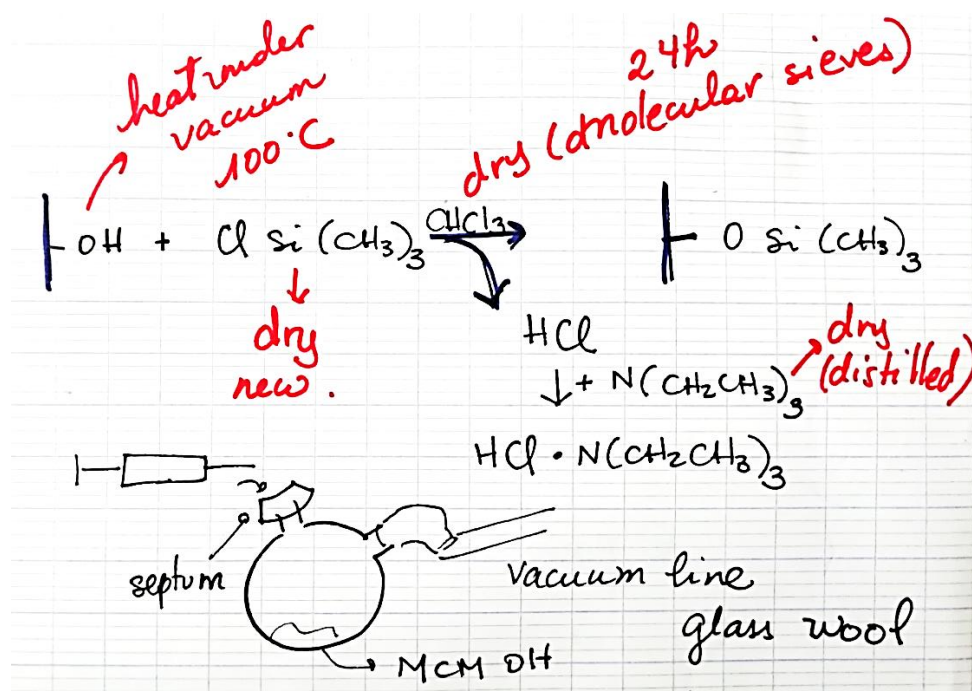 heat under
vacuum
100°C
24h
dry (molecular sieves)
OH + Cl Si (CH3)3 CHCl3 O Si (CH3)3
dry
new.
HCl
+ N(CH2CH3)3
dry
(distilled)
HCl · N(CH2CH3)3
septum
vacuum line
glass wool
MCM OH